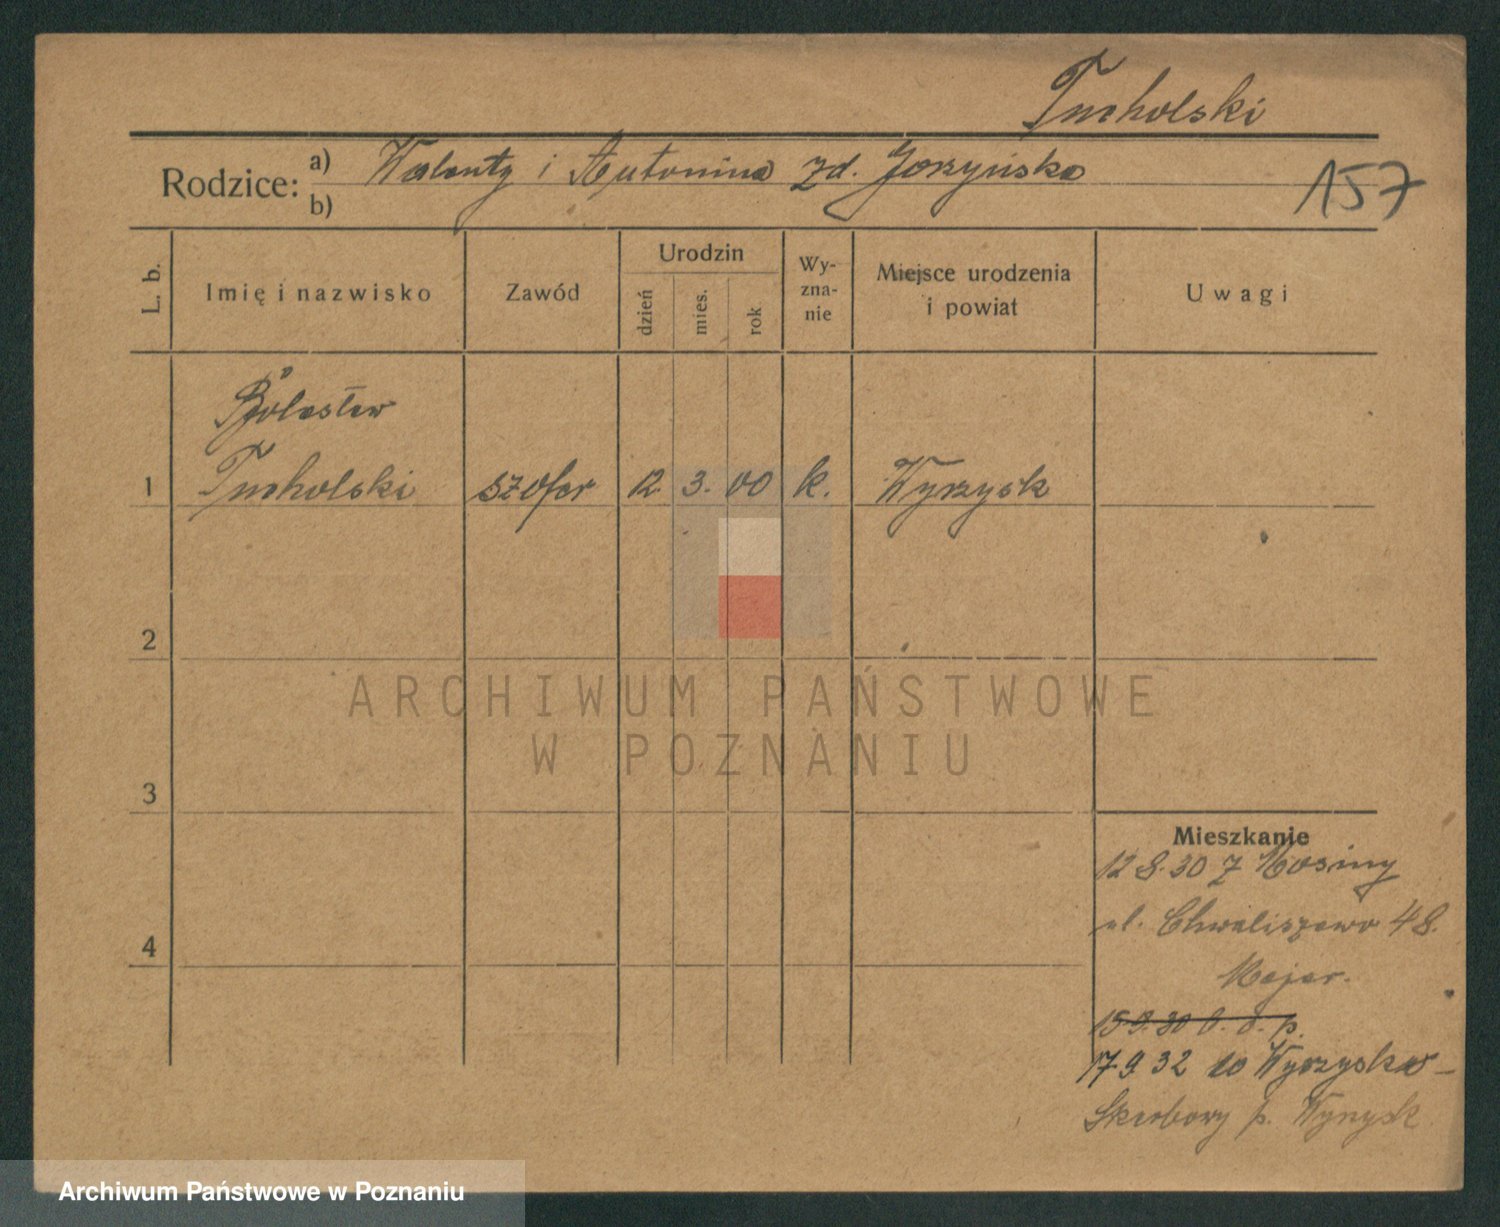 Tucholski
Rodzice: a) Walenty i Antonina zd. Gorzyńska
b)
157
L. b.
Imię i nazwisko
Zawód
Urodzin
dzień
mies.
rok
Wy-
zna-
nie
Miejsce urodzenia
i powiat
Uwagi
Bolesław
1 Tucholski szofer 12. 3. 00 k. Wyrzysk
2
ARCHIWUM PAŃSTWOWE
W POZNANIU
3
Mieszkanie
12 8. 30 z Mosiny
ul. Chwaliszewo 48.
Major.
15 9. 30 b. o. p.
17 9 32 do Wyrzyska-
Skarbowy p. Wyrzysk
Archiwum Państwowe w Poznaniu